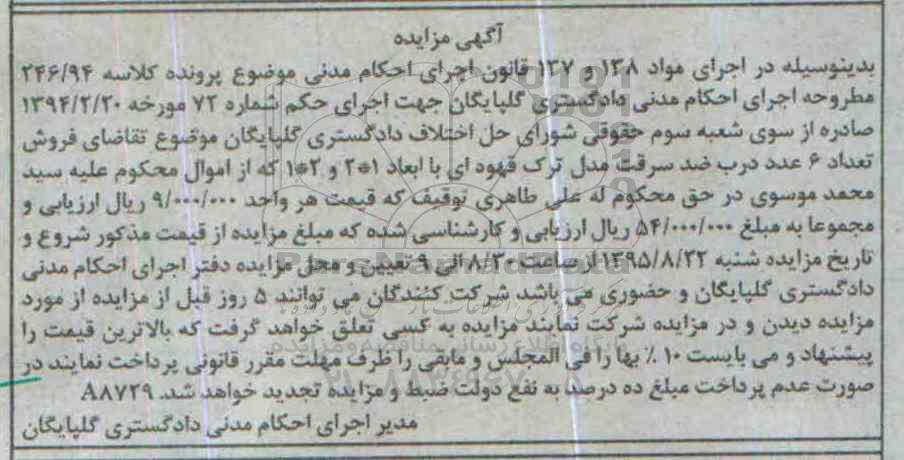 آگهی مزایده
بدینوسیله در اجرای مواد ۱۳۸ و ۱۳۷ قانون اجرای احکام مدنی موضوع پرونده کلاسه ۲۴۶/۹۴
مطروحه اجرای احکام مدنی دادگستری گلپایگان جهت اجرای حکم شماره ۷۲ مورخه ۱۳۹۴/۲/۲۰
صادره از سوی شعبه سوم حقوقی شورای حل اختلاف دادگستری گلپایگان موضوع تقاضای فروش
تعداد ۶ عدد درب ضد سرقت مدل ترک قهوه ای با ابعاد ۱*۲ و ۲*۱ که از اموال محکوم علیه سید
محمد موسوی در حق محکوم له علی طاهری توقیف که قیمت هر واحد ۹/۰۰۰/۰۰۰ ریال ارزیابی و
مجموعا به مبلغ ۵۴/۰۰۰/۰۰۰ ریال ارزیابی و کارشناسی شده که مبلغ مزایده از قیمت مذکور شروع و
تاریخ مزایده شنبه ۱۳۹۵/۸/۲۲ از ساعت ۸/۳۰ الی ۹ تعیین و محل مزایده دفتر اجرای احکام مدنی
دادگستری گلپایگان و حضوری می باشد شرکت کنندگان می توانند ۵ روز قبل از مزایده از مورد
مزایده دیدن و در مزایده شرکت نمایند مزایده به کسی تعلق خواهد گرفت که بالاترین قیمت را
پیشنهاد و می بایست ۱۰ ٪ بها را فی المجلس و مابقی را ظرف مهلت مقرر قانونی پرداخت نمایند در
صورت عدم پرداخت مبلغ ده درصد به نفع دولت ضبط و مزایده تجدید خواهد شد. A۸۷۲۹
مدیر اجرای احکام مدنی دادگستری گلپایگان